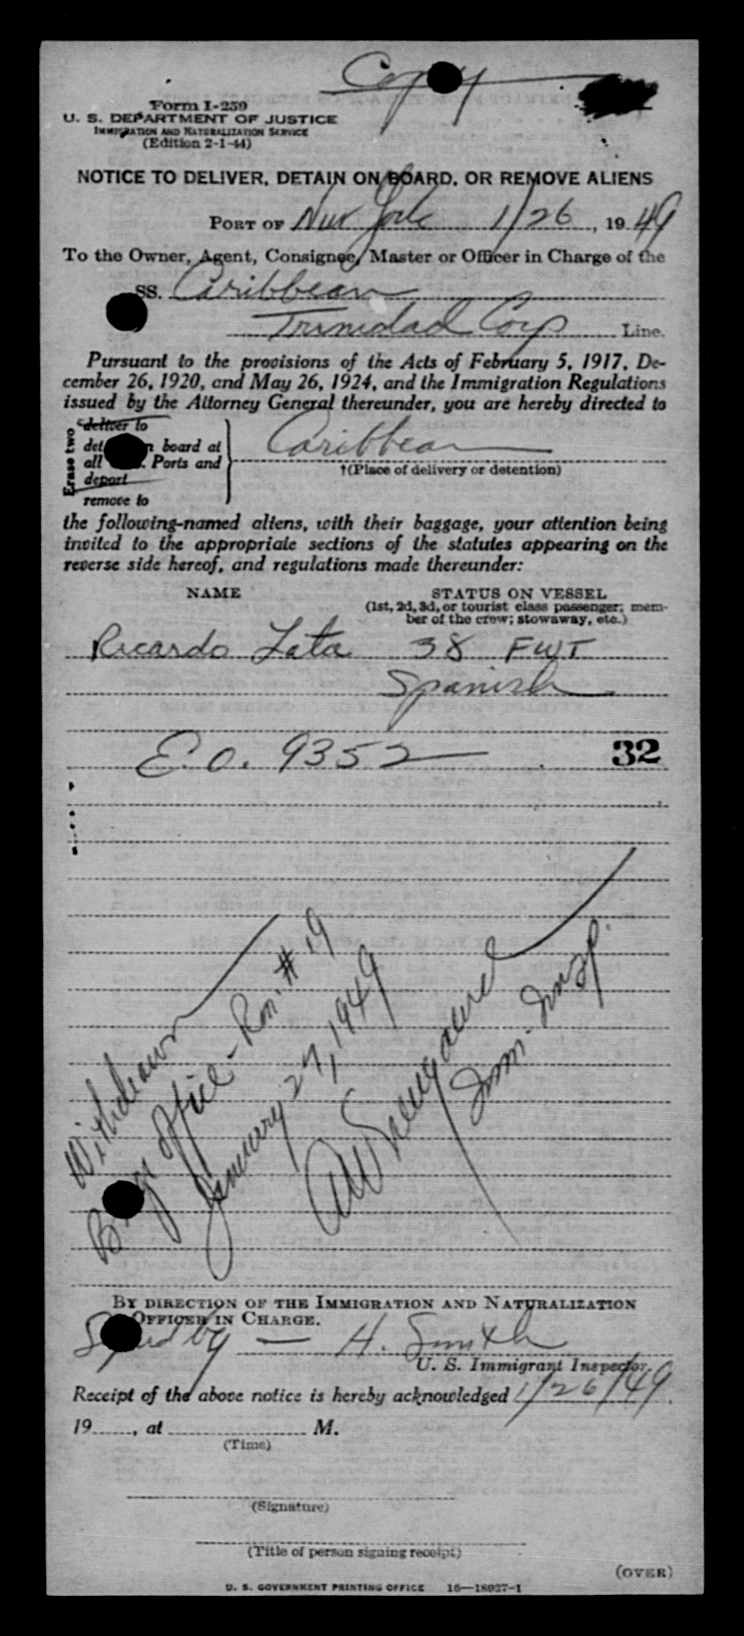 Copy
Form I-259
U. S. DEPARTMENT OF JUSTICE
IMMIGRATION AND NATURALIZATION SERVICE
(Edition 2-1-44)
NOTICE TO DELIVER, DETAIN ON BOARD, OR REMOVE ALIENS
PORT OF New York 1/26, 1949
To the Owner, Agent, Consignee, Master or Officer in Charge of the
SS. Caribbean
Trinidad Corp Line.
Pursuant to the provisions of the Acts of February 5, 1917, De-
cember 26, 1920, and May 26, 1924, and the Immigration Regulations
issued by the Attorney General thereunder, you are hereby directed to
Erase two
deliver to
det n board at
all . Ports and
deport
remove to
Caribbean
†(Place of delivery or detention)
the following-named aliens, with their baggage, your attention being
invited to the appropriate sections of the statutes appearing on the
reverse side hereof, and regulations made thereunder:
NAME STATUS ON VESSEL
(1st, 2d, 3d, or tourist class passenger; mem-
ber of the crew; stowaway, etc.)
Ricardo Lata 38 FWT
Spanish
E.O. 9352 32
Withdrawn
Office - Rm. # 19
January 27, 1949
Imm. Insp.
BY DIRECTION OF THE IMMIGRATION AND NATURALIZATION
OFFICER IN CHARGE.
Signed by — H. Smith
U. S. Immigrant Inspector.
Receipt of the above notice is hereby acknowledged 1/26/49
19......, at .................... M.
(Time)
(Signature)
(Title of person signing receipt)
(OVER)
U. S. GOVERNMENT PRINTING OFFICE 16—18927-1